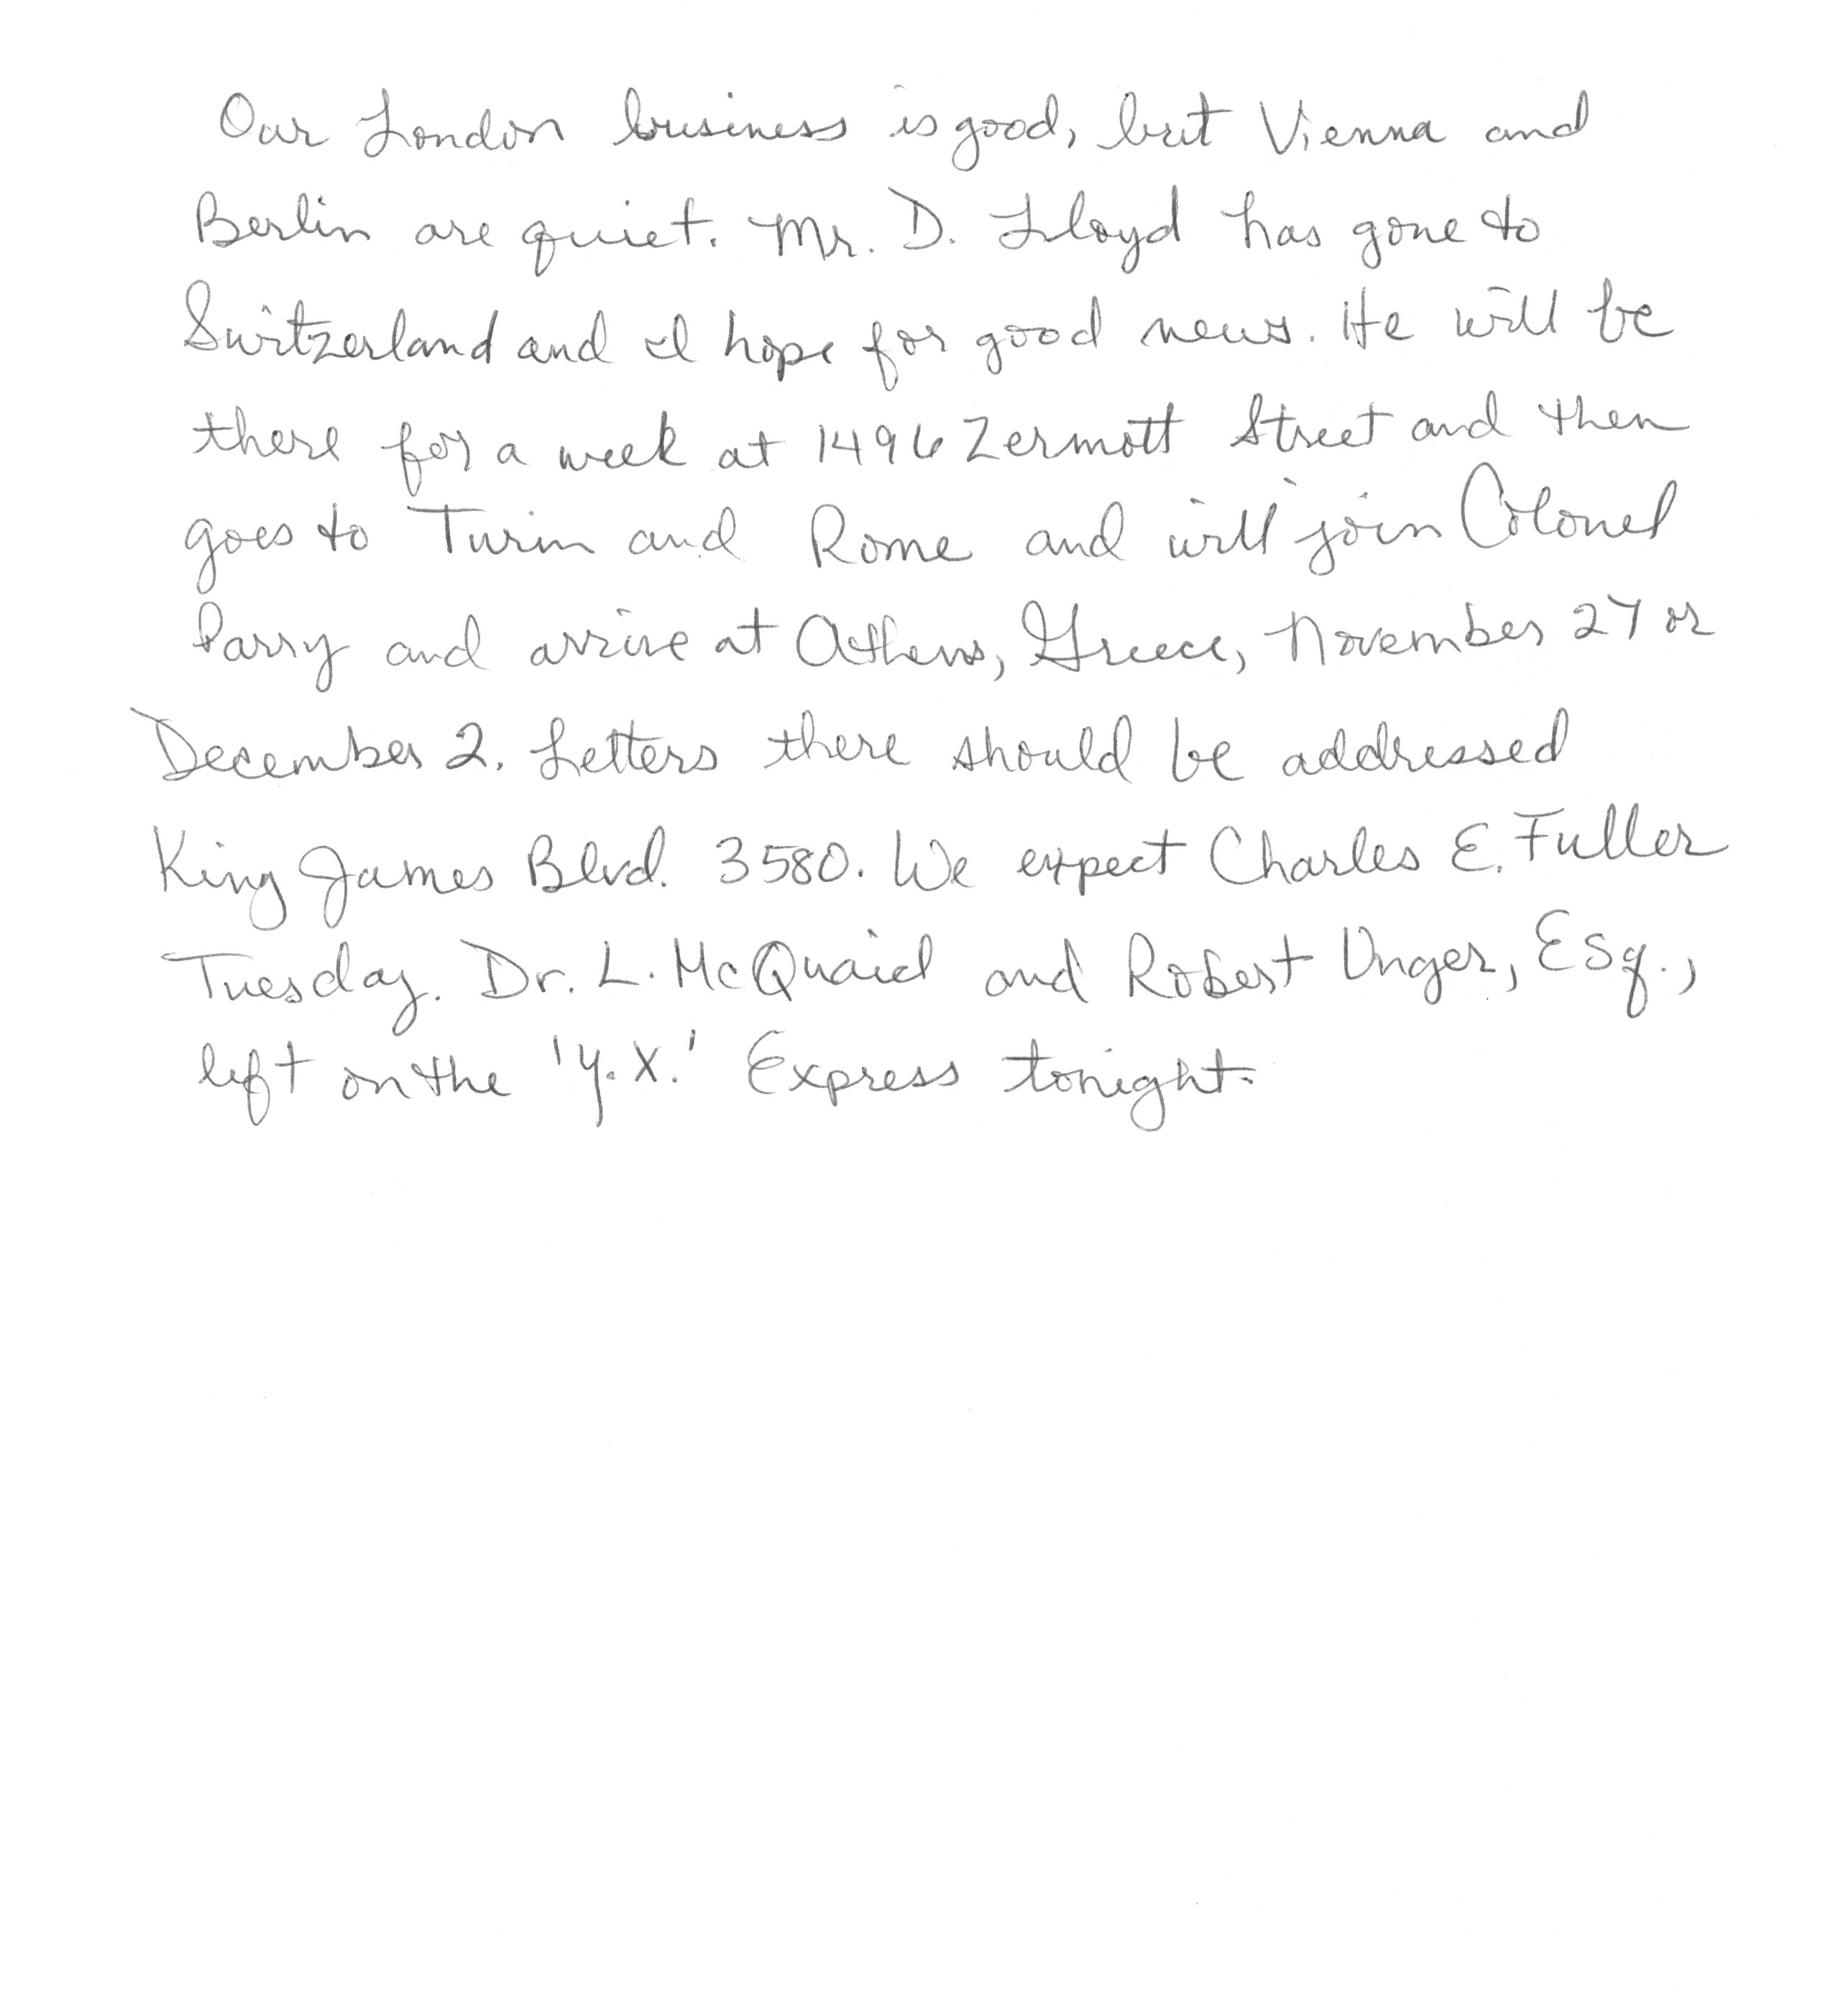 Our London business is good, but Vienna and
Berlin are quiet. Mr. D. Lloyd has gone to
Switzerland and I hope for good news. He will be
there for a week at 1496 Zermott Street and then
goes to Turin and Rome and will join Colonel
Parry and arrive at Athens, Greece, November 27 or
December 2. Letters there should be addressed
King James Blvd. 3580. We expect Charles E. Fuller
Tuesday. Dr. L. McQuaid and Robert Unger, Esq.,
left on the 'Y.X.' Express tonight.